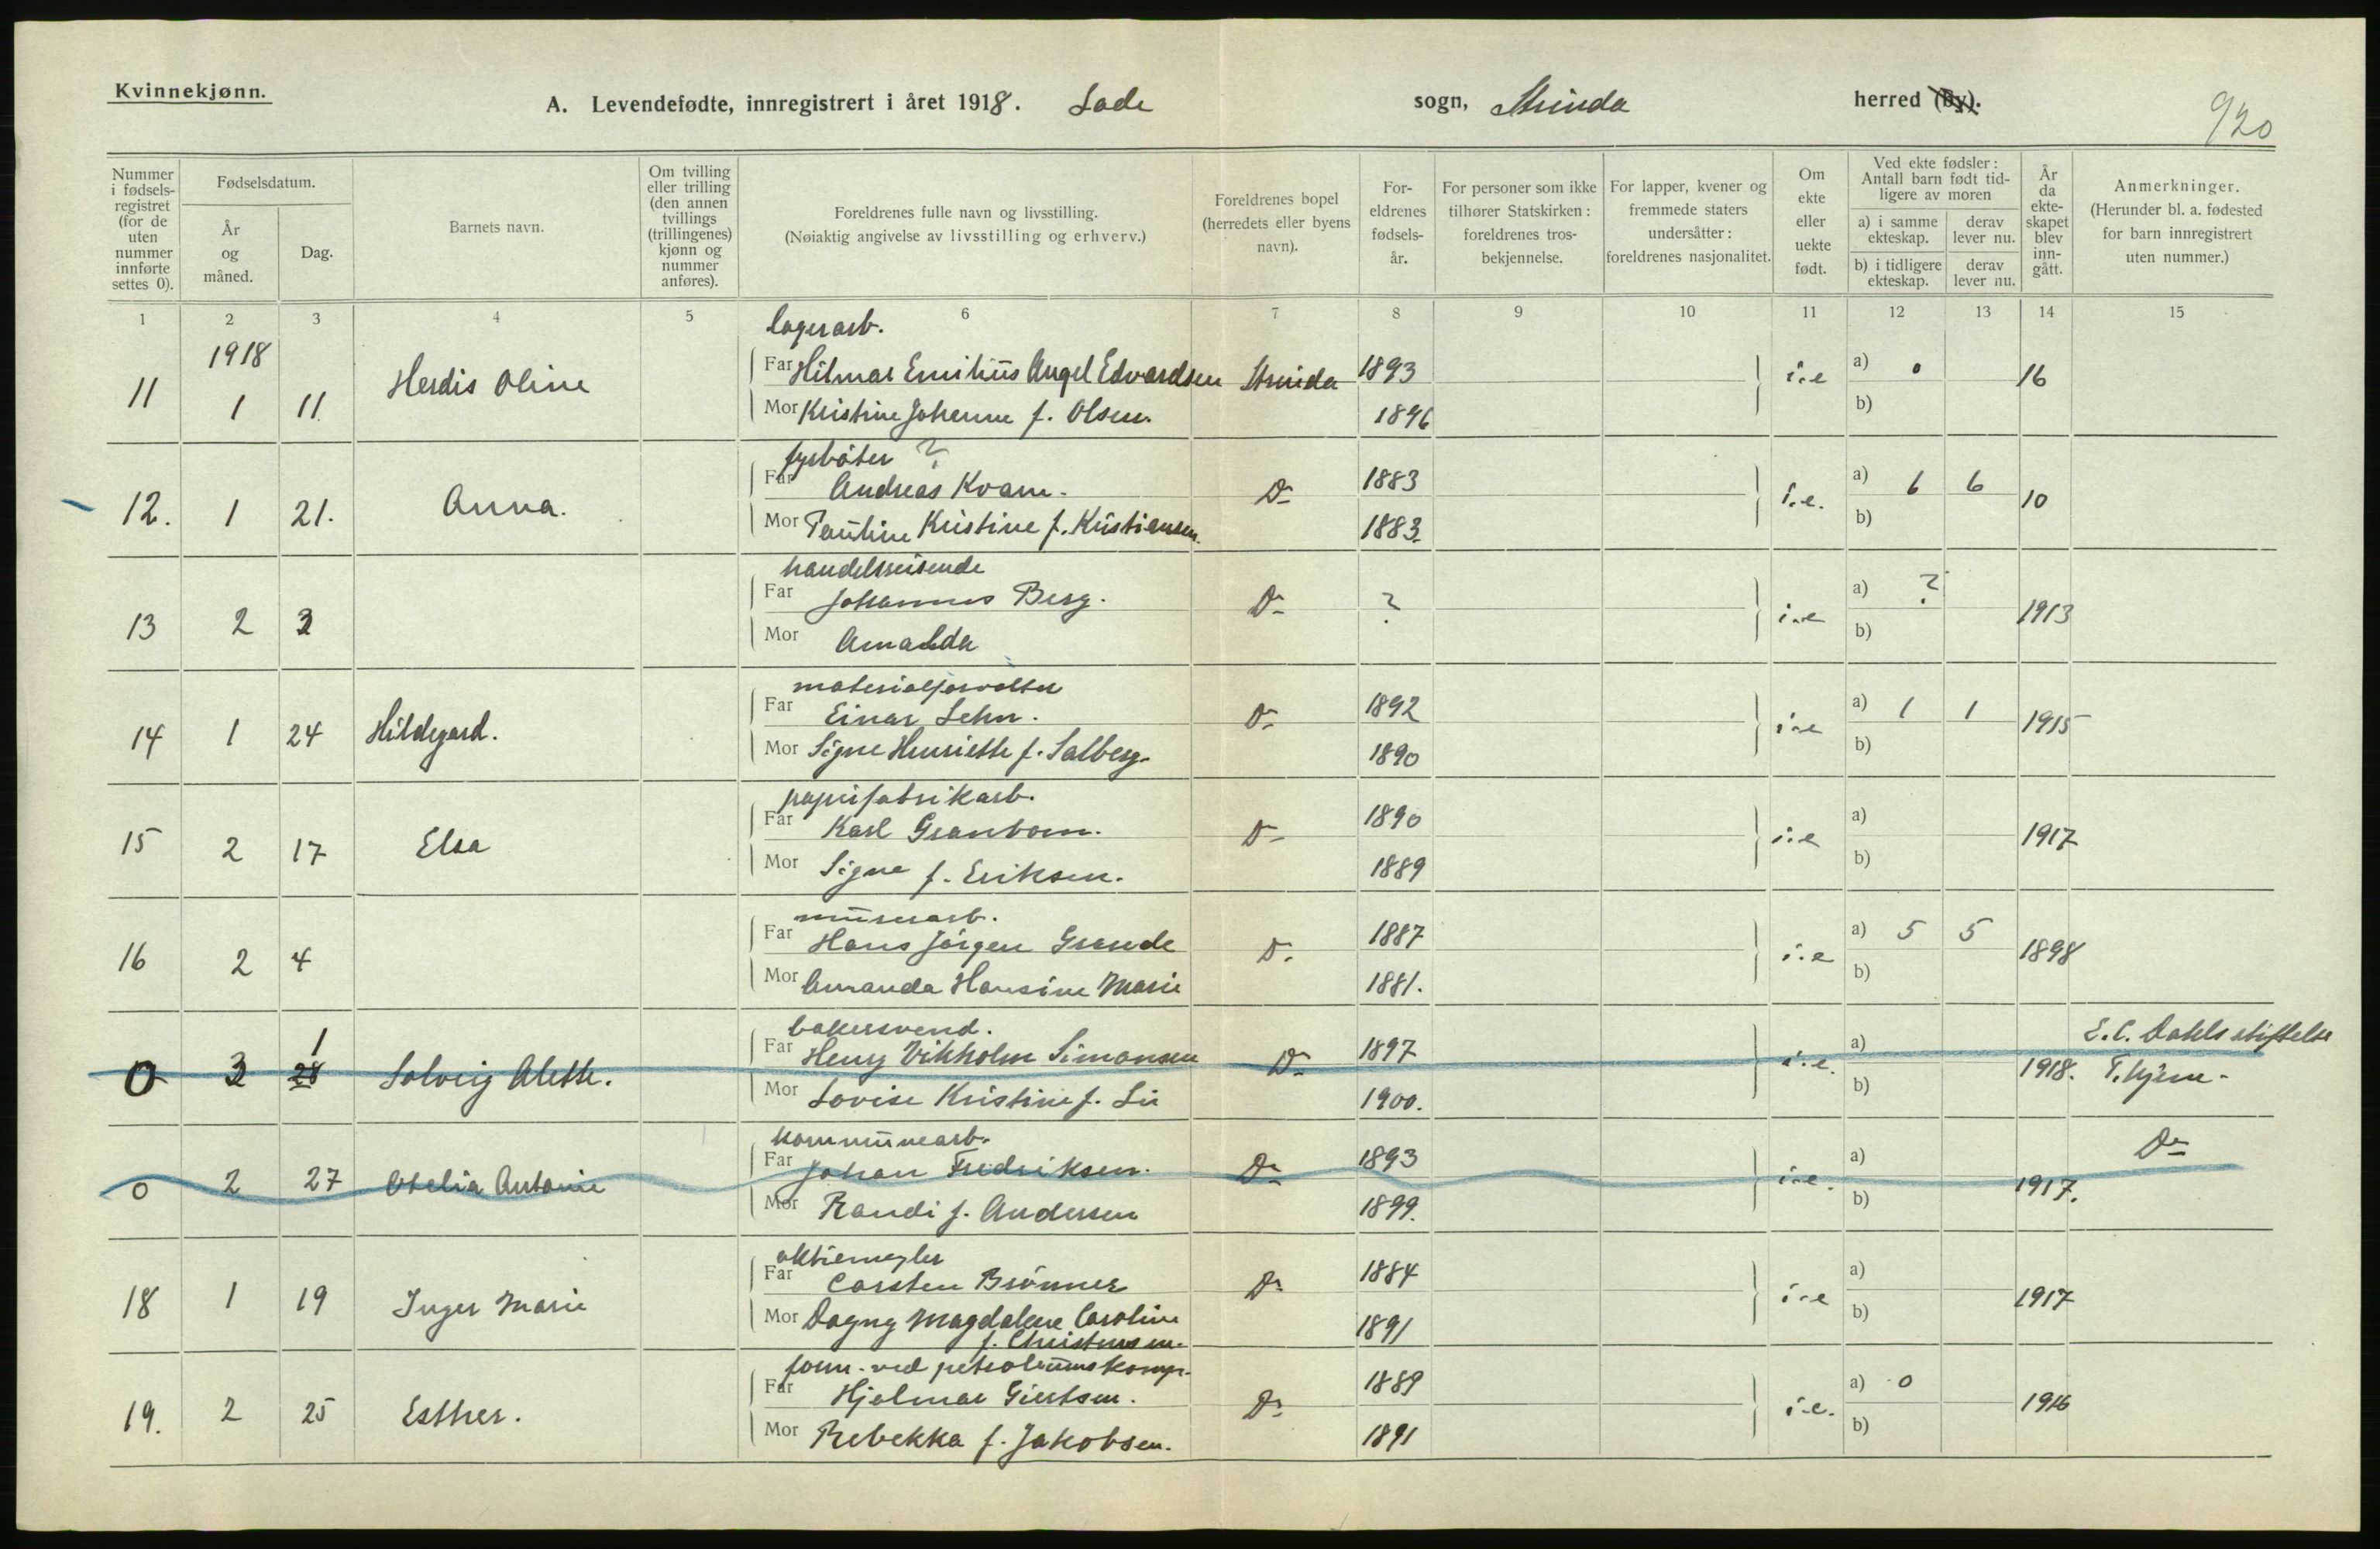 Kvinnekjønn.
A. Levendefødte, innregistrert i året 1918. Lade sogn, Strinda herred (By).
920
Nummer i fødsels-registret (for de uten nummer innførte settes 0).
Fødselsdatum.
År og måned.
Dag.
Barnets navn.
Om tvilling eller trilling (den annen tvillings (trillingenes) kjønn og nummer anføres).
Foreldrenes fulle navn og livsstilling.
(Nøiaktig angivelse av livsstilling og erhverv.)
Foreldrenes bopel (herredets eller byens navn).
For-eldrenes fødsels-år.
For personer som ikke tilhører Statskirken: foreldrenes tros-bekjennelse.
For lapper, kvener og fremmede staters undersåtter: foreldrenes nasjonalitet.
Om ekte eller uekte født.
Ved ekte fødsler: Antall barn født tid-ligere av moren
a) i samme ekteskap.
derav lever nu.
b) i tidligere ekteskap.
derav lever nu.
År da ekte-skapet blev inn-gått.
Anmerkninger.
(Herunder bl. a. fødested for barn innregistrert uten nummer.)
1 2 3 4 5 6 7 8 9 10 11 12 13 14 15
lagerarb.
1918
Far Hilmar Emilius Angel Edvardsen Strinda 1893
11 1 11 Herdis Oline i.e a) 0 16
Mor Kristine Johanne f. Olsen. 1896 b)
fyrbøter ?
Far Andreas Kvam. 1883
12. 1 21. Anna. D- i.e. a) 6 6 10
Mor Pauline Kristine f. Kristiansen. 1883. b)
handelsreisende
Far Johannes Berg.
13 2 3 D- ? i.e a) ? 1913
Mor Amalda b)
materialforvalter
Far Einar Lehn. 1892
14 1 24 Hildegard. D- i.e a) 1 1 1915
Mor Signe Henriette f. Salberg. 1890 b)
papirfabrikarb.
Far Karl Granbom. 1890
15 2 17 Elsa D- i.e a) 1917
Mor Signe f. Eriksen. 1889 b)
murerarb.
Far Hans Jørgen Grande 1887
16 2 4 D- i.e a) 5 5 1898
Mor Amanda Hansine Marie 1881. b)
bakersvend. E. C. Dahls stiftelse
1
Far Henry Vikholm Simonsen 1897
0 3 28 Solveig Alette. D- i.e. a) 1918. T.hjem-
Mor Lovise Kristine f. Lu 1900. b)
kommunearb. D-
Far Johan Fredriksen. 1893
0 2 27 Otelia Antonie D- i.e. a) 1917.
Mor Randi f. Andersen 1899. b)
aktiemegler
Far Carsten Brønner 1884
18 1 19 Inger Marie D- i.e a) 1917
Mor Dagny Magdalene Caroline 1891 b)
f. Christensen.
form. ved petroleumskomp.
Far Hjalmar Giertsen. 1889
19. 2 25 Esther. D- i.e. a) 0 1916
Mor Rebekka f. Jakobsen. 1891 b)